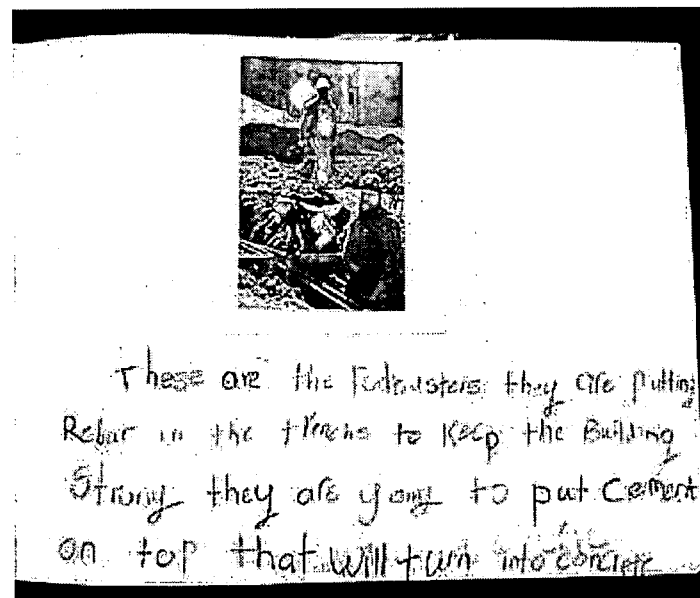 These are the Rodbusters they are putting
Rebar in the trenchs to Keep the Building
Strong they are going to put Cement
on top that will turn into concrete